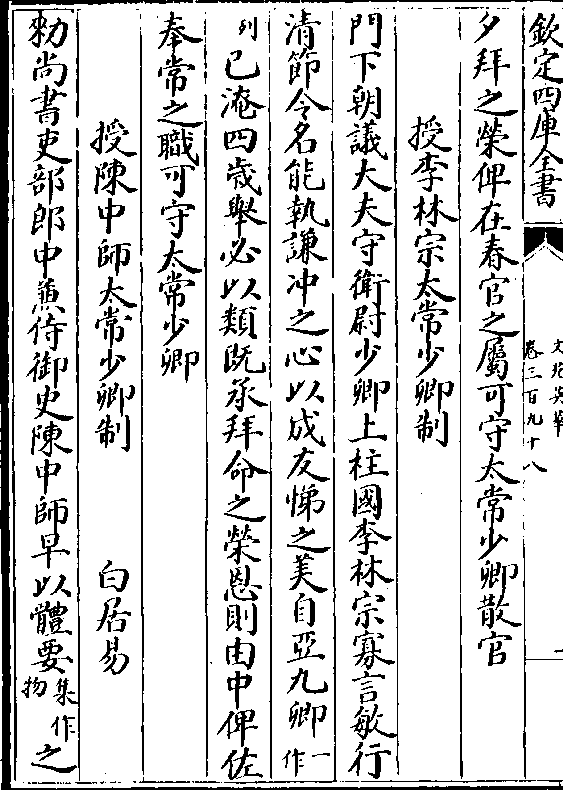 欽定四庫全書
文苑英華
卷三百九十八
夕拜之榮俾在春官之屬可守太常少卿散官
授李林宗太常少卿制
門下朝議大夫守衛尉少卿上柱國李林宗寡言敏行
清節令名能執謙冲之心以成友悌之美自亞九卿一作
列已淹四歲舉必以類既承拜命之榮恩則由中俾佐
奉常之職可守太常少卿
授陳中師太常少卿制 白居易
勑尚書吏部郎中兼侍御史陳中師早以體要集作物之